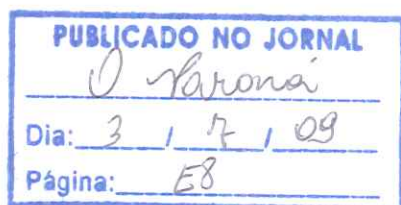 PUBLICADO NO JORNAL
O Paraná
Dia: 3 / 7 / 09
Página: E8